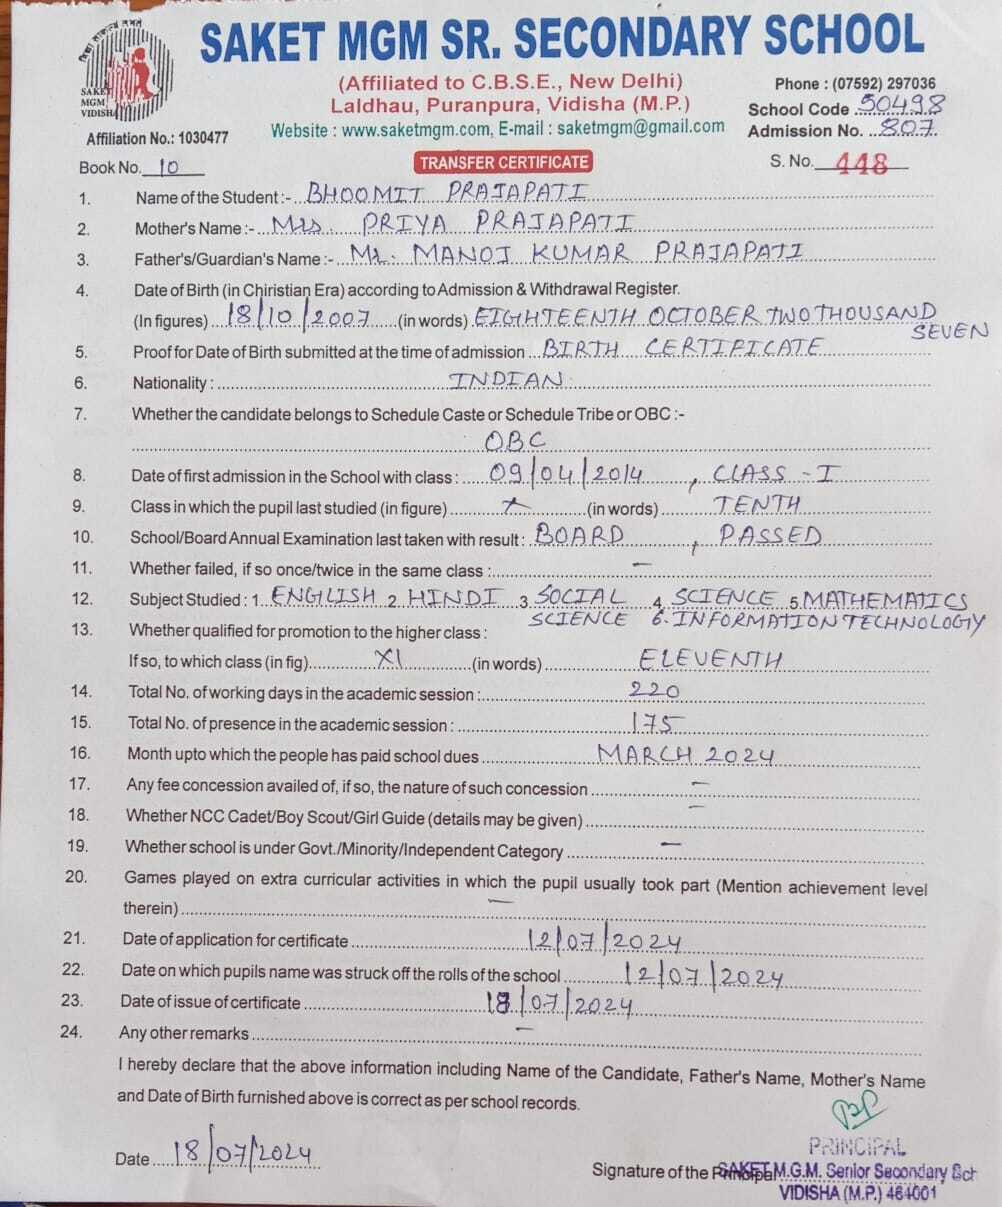 SAKET MGM SR. SECONDARY SCHOOL
SAKET
MGM
VIDISHA
(Affiliated to C.B.S.E., New Delhi)
Laldhau, Puranpura, Vidisha (M.P.)
Website : www.saketmgm.com, E-mail : saketmgm@gmail.com
Phone : (07592) 297036
School Code 50498
Admission No. 807
Affiliation No.: 1030477
Book No. 10
TRANSFER CERTIFICATE
S. No. 448
1. Name of the Student :- BHOOMIT PRAJAPATI
2. Mother's Name :- Mrs. PRIYA PRAJAPATI
3. Father's/Guardian's Name :- Mr. MANOJ KUMAR PRAJAPATI
4. Date of Birth (in Chiristian Era) according to Admission & Withdrawal Register.
(In figures) 18/10/2007 (in words) EIGHTEENTH OCTOBER TWO THOUSAND
SEVEN
5. Proof for Date of Birth submitted at the time of admission BIRTH CERTIFICATE
6. Nationality : INDIAN
7. Whether the candidate belongs to Schedule Caste or Schedule Tribe or OBC :-
OBC
8. Date of first admission in the School with class : 09/04/2014, CLASS - I
9. Class in which the pupil last studied (in figure) X (in words) TENTH
10. School/Board Annual Examination last taken with result : BOARD, PASSED
11. Whether failed, if so once/twice in the same class : —
12. Subject Studied : 1 ENGLISH 2 HINDI 3 SOCIAL 4 SCIENCE 5 MATHEMATICS
SCIENCE 6. INFORMATION TECHNOLOGY
13. Whether qualified for promotion to the higher class :
If so, to which class (in fig) XI (in words) ELEVENTH
14. Total No. of working days in the academic session : 220
15. Total No. of presence in the academic session : 175
16. Month upto which the people has paid school dues MARCH 2024
17. Any fee concession availed of, if so, the nature of such concession —
18. Whether NCC Cadet/Boy Scout/Girl Guide (details may be given) —
19. Whether school is under Govt./Minority/Independent Category —
20. Games played on extra curricular activities in which the pupil usually took part (Mention achievement level
therein) —
21. Date of application for certificate 12/07/2024
22. Date on which pupils name was struck off the rolls of the school 12/07/2024
23. Date of issue of certificate 18/07/2024
24. Any other remarks —
I hereby declare that the above information including Name of the Candidate, Father's Name, Mother's Name
and Date of Birth furnished above is correct as per school records.
Date 18/07/2024
PRINCIPAL
Signature of the Principal
SAKET M.G.M. Senior Secondary Sch
VIDISHA (M.P.) 464001